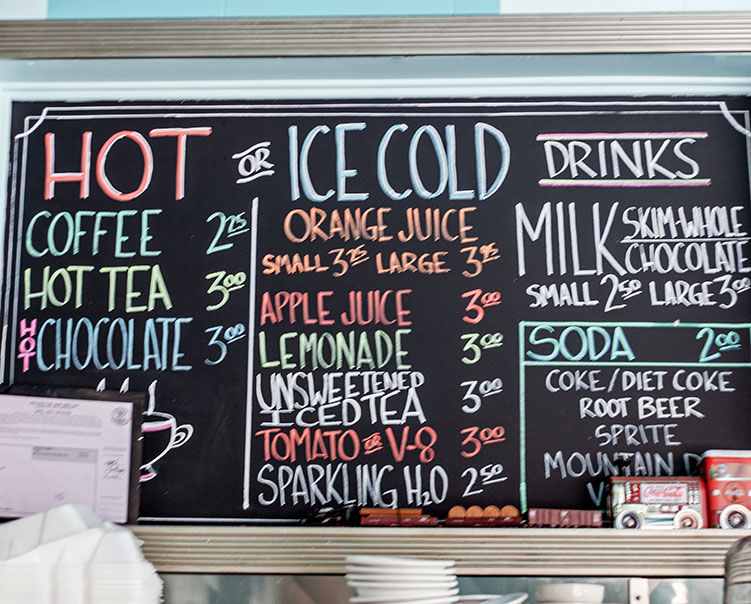 HOT OR ICE COLD DRINKS
COFFEE 2.25
HOT TEA 3.00
HOT CHOCOLATE 3.00
ORANGE JUICE
SMALL 3.25 LARGE 3.95
APPLE JUICE 3.00
LEMONADE 3.00
UNSWEETENED
ICED TEA 3.00
TOMATO OR V-8 3.00
SPARKLING H2O 2.50
MILK SKIM-WHOLE
CHOCOLATE
SMALL 2.50 LARGE 3.00
SODA 2.00
COKE/DIET COKE
ROOT BEER
SPRITE
MOUNTAIN